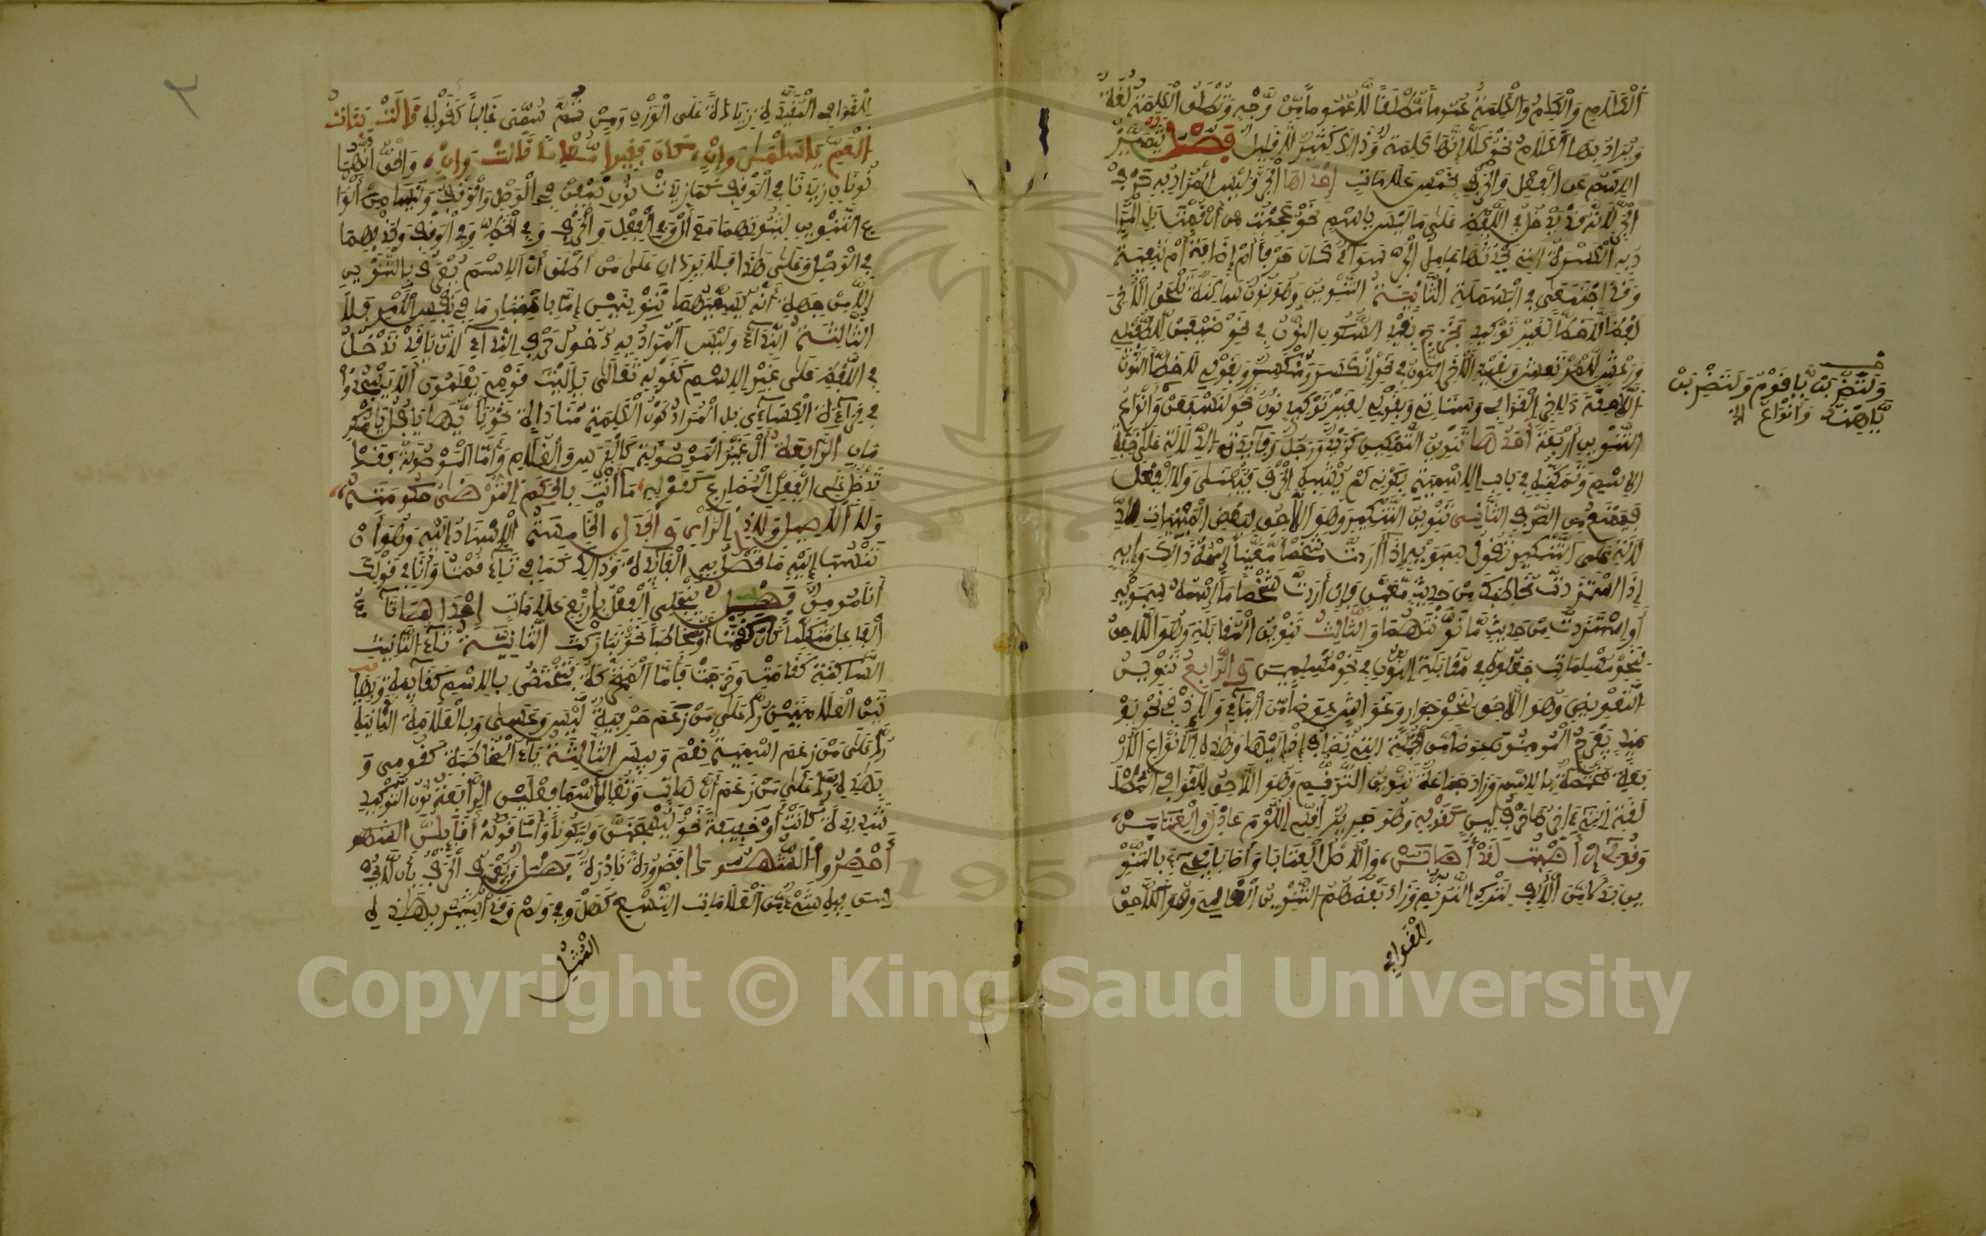 الكلام والكلم والكلمة عموما مطلقا لا عموما من وجه وتطلق الكلمة لغة
ويراد بها الكلام نحو كلا إنها كلمة وذلك كثير لا قليل فصل يتميز
الاسم عن الفعل والحرف بخمس علامات إحداها الجر وليس المراد به حرف
الجر لأنه قد يدخل في اللفظ على ما ليس باسم نحو عجبت من أن قمت بل المرا
د به الكسرة التي يحدثها عامل الجر سواء كان حرفا أم إضافة أم تبعية
وقد اجتمعت في البسملة الثانية التنوين وهو نون ساكنة تلحق الآخر
لفظا لا خطا لغير توكيد فخرج بقيد السكون النون في نحو ضيفن للطفيلي
ورعشن للمرتعش وبقيد الآخر النون في نحو انكسر ومنكسر وبقولي لا خطا النون
اللاحقة لآخر القوافي وستأتي وبقولي لغير توكيد نون نحو لنسفعن وأنواع
التنوين أربعة أحدها تنوين التمكين كزيد ورجل وفائدته الدلالة على خفة
الاسم وتمكنه في باب الاسمية بكونه لم يشبه الحرف فيبنى ولا الفعل
فيمنع من الصرف الثاني تنوين التنكير وهو اللاحق لبعض المبنيات للد
لالة على التنكير تقول سيبويه إذا أردت شخصا معينا اسمه ذلك وإيه
إذا استزدت مخاطبك من حديث معين فإن أردت شخصا ما اسمه سيبويه
أو استزدت من حديث ما نونتهما والثالث تنوين المقابلة وهو اللاحق
لنحو مسلمات جعلوه في مقابلة النون في نحو مسلمين والرابع تنوين
التعويض وهو اللاحق لنحو جوار وغواش عوضا من الياء ولإذ في نحو ويو
ميذ يفرح المومنون عوضا من الجملة التي تضاف إذ إليها وهذه الأنواع الأر
بعة مختصة بالاسم وزاد جماعة تنوين الترنم وهو اللاحق للقوافي المطلـ
قة أي التي آخرها حرف لين كقوله وهو جرير أقلي اللوم عاذل والعتابن
وقولي إن أصبت لقد أصابن والأصل العتابا وأصابا فجيء بالتنو
ين بدلا من الألف لترك الترنم وزاد بعضهم التنوين الغالي وهو اللاحق
للقوافي
ولتضربن يا قوم ولتضربن
يا هند وأنواع الخ
للقوافي المقيدة زيادة على الوزن ومن ثم سمي غاليا كقوله قالت بنات
العم يا سلمى وإنن كان فقيرا معدما قالت وإنن والحق أنهما
نونان زيدتا في الوقف كما زيدت نون ضيفن في الوصل والوقف وليسا من أنوا
ع التنوين لثبوتهما مع ال وفي الفعل والحرف وفي الخط وفي الوقف وحذفهما
في الوصل وعلى هذا فلا يردان على من أطلق أن الاسم يعرف بالتنوين
إلا من جهة أنه يسميهما تنوينين إما باعتبار ما في نفس الأمر فلا
الثالثة النداء وليس المراد به دخول حرف النداء لأن يا قد تدخل
في اللفظ على غير الاسم كقوله تعالى يا ليت قومي يعلمون ألا يسجدوا
في قراءة الكسائي بل المراد كون الكلمة مناداة نحو يا أيها يا فل يا مكر
مان الرابعة ال غير الموصولة كالفرس والغلام وأما الموصولة فقد
تدخل على الفعل المضارع كقوله ما أنت بالحكم الترضى حكومته
ولا الأصيل ولا ذي الرأي والجدل الخامسة الإسناد إليه وهو أن
تنسب إليه ما تحصل به الفائدة وذلك كما في تاء قمت وأنا في قولك
أنا مومن فصل ينجلي الفعل بأربع علامات إحداها تاء
الفاعل متكلما كان كقمت أو مخاطبا نحو تباركت الثانية تاء التأنيث
الساكنة كقامت وخرجت فأما المتحركة فتختص بالاسم كقائمة وبها
تين العلامتين رد على من زعم حرفية ليس وعسى وبالعلامة الثانية
رد على من زعم اسمية نعم وبيس الثالثة ياء المخاطبة كقومي و
بهذه رد على من زعم أن هات وتعال اسما فعلين الرابعة نون التوكيد
شديدة كانت أو خفيفة نحو ليسجنن وليكونا وأما قوله أقائلن
أحضروا الشهودا فضرورة نادرة فصل ويعرف الحرف بأن لا يحـ
سن فيه شيء من العلامات التسع كهل وفي ولم وقد أشير بهذه
المثل
Copyright © King Saud University
1957